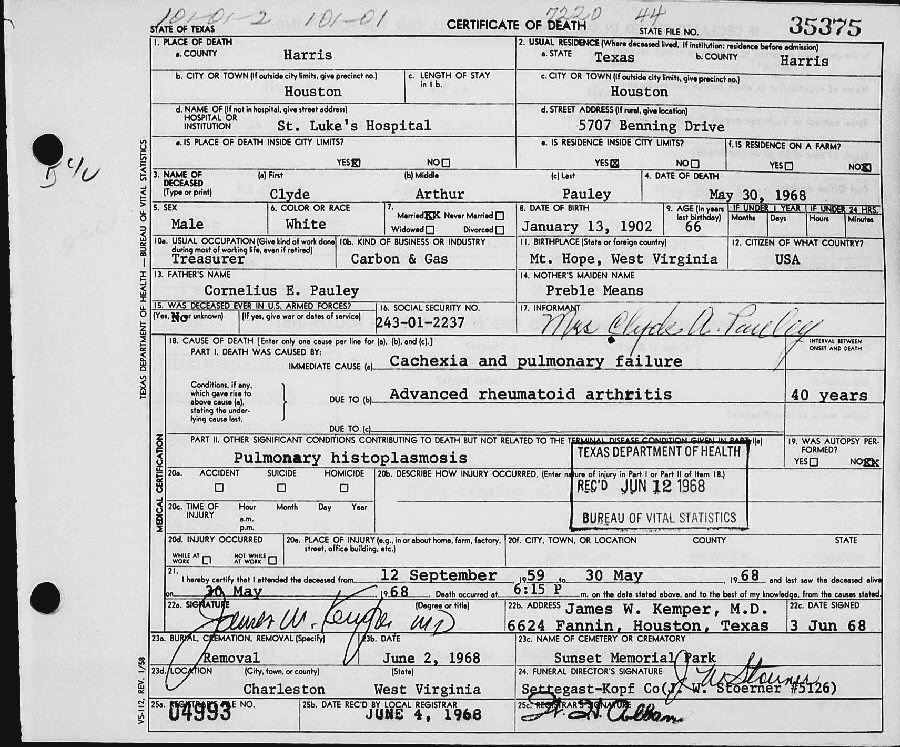 101-01-2 101-01 7220 44
STATE OF TEXAS CERTIFICATE OF DEATH STATE FILE NO. 35375
1. PLACE OF DEATH
a. COUNTY Harris
2. USUAL RESIDENCE (Where deceased lived. If institution: residence before admission)
a. STATE Texas b. COUNTY Harris
b. CITY OR TOWN (If outside city limits, give precinct no.) Houston
c. LENGTH OF STAY in 1 b.
c. CITY OR TOWN (If outside city limits, give precinct no.) Houston
d. NAME OF (If not in hospital, give street address) HOSPITAL OR INSTITUTION St. Luke's Hospital
d. STREET ADDRESS (If rural, give location) 5707 Benning Drive
e. IS PLACE OF DEATH INSIDE CITY LIMITS? YES☒ NO☐
e. IS RESIDENCE INSIDE CITY LIMITS? YES☒ NO☐
f. IS RESIDENCE ON A FARM? YES☐ NO☒
3. NAME OF DECEASED (Type or print)
(a) First Clyde (b) Middle Arthur (c) Last Pauley
4. DATE OF DEATH May 30, 1968
5. SEX Male
6. COLOR OR RACE White
7. Married☒ Never Married☐ Widowed☐ Divorced☐
8. DATE OF BIRTH January 13, 1902
9. AGE (In years last birthday) 66
IF UNDER 1 YEAR Months Days
IF UNDER 24 HRS. Hours Minutes
10a. USUAL OCCUPATION (Give kind of work done during most of working life, even if retired) Treasurer
10b. KIND OF BUSINESS OR INDUSTRY Carbon & Gas
11. BIRTHPLACE (State or foreign country) Mt. Hope, West Virginia
12. CITIZEN OF WHAT COUNTRY? USA
13. FATHER'S NAME Cornelius E. Pauley
14. MOTHER'S MAIDEN NAME Preble Means
15. WAS DECEASED EVER IN U.S. ARMED FORCES?
(Yes, No or unknown) (If yes, give war or dates of service) No
16. SOCIAL SECURITY NO. 243-01-2237
17. INFORMANT Mrs Clyde A. Pauley
18. CAUSE OF DEATH [Enter only one cause per line for (a), (b), and (c).]
INTERVAL BETWEEN ONSET AND DEATH
PART I. DEATH WAS CAUSED BY:
IMMEDIATE CAUSE (a) Cachexia and pulmonary failure
Conditions, if any, which gave rise to above cause (a), stating the underlying cause last.
DUE TO (b) Advanced rheumatoid arthritis 40 years
DUE TO (c)
PART II. OTHER SIGNIFICANT CONDITIONS CONTRIBUTING TO DEATH BUT NOT RELATED TO THE TERMINAL DISEASE CONDITION GIVEN IN PART I(a)
Pulmonary histoplasmosis
19. WAS AUTOPSY PERFORMED? YES☐ NO☒
TEXAS DEPARTMENT OF HEALTH
REC'D JUN 12 1968
BUREAU OF VITAL STATISTICS
20a. ACCIDENT ☐ SUICIDE ☐ HOMICIDE ☐
20b. DESCRIBE HOW INJURY OCCURRED. (Enter nature of injury in Part I or Part II of Item 18.)
20c. TIME OF INJURY Hour a.m. p.m. Month Day Year
20d. INJURY OCCURRED WHILE AT WORK ☐ NOT WHILE AT WORK ☐
20e. PLACE OF INJURY (e.g., in or about home, farm, factory, street, office building, etc.)
20f. CITY, TOWN, OR LOCATION COUNTY STATE
21. I hereby certify that I attended the deceased from 12 September 1959 to 30 May 1968 and last saw the deceased alive
on 30 May 1968. Death occurred at 6:15 P m. on the date stated above, and to the best of my knowledge, from the causes stated.
22a. SIGNATURE (Degree or title) James W. Kemper MD
22b. ADDRESS James W. Kemper, M.D.
6624 Fannin, Houston, Texas
22c. DATE SIGNED 3 Jun 68
23a. BURIAL, CREMATION, REMOVAL (Specify) Removal
23b. DATE June 2, 1968
23c. NAME OF CEMETERY OR CREMATORY Sunset Memorial Park
23d. LOCATION (City, town, or county) (State)
Charleston West Virginia
24. FUNERAL DIRECTOR'S SIGNATURE J W Stoerner
Settegast-Kopf Co(J. W. Stoerner #5126)
25a. REGISTRAR'S FILE NO. 04993
25b. DATE REC'D BY LOCAL REGISTRAR JUNE 4, 1968
25c. REGISTRAR'S SIGNATURE
TEXAS DEPARTMENT OF HEALTH—BUREAU OF VITAL STATISTICS
MEDICAL CERTIFICATION
VS-112, REV. 1/58